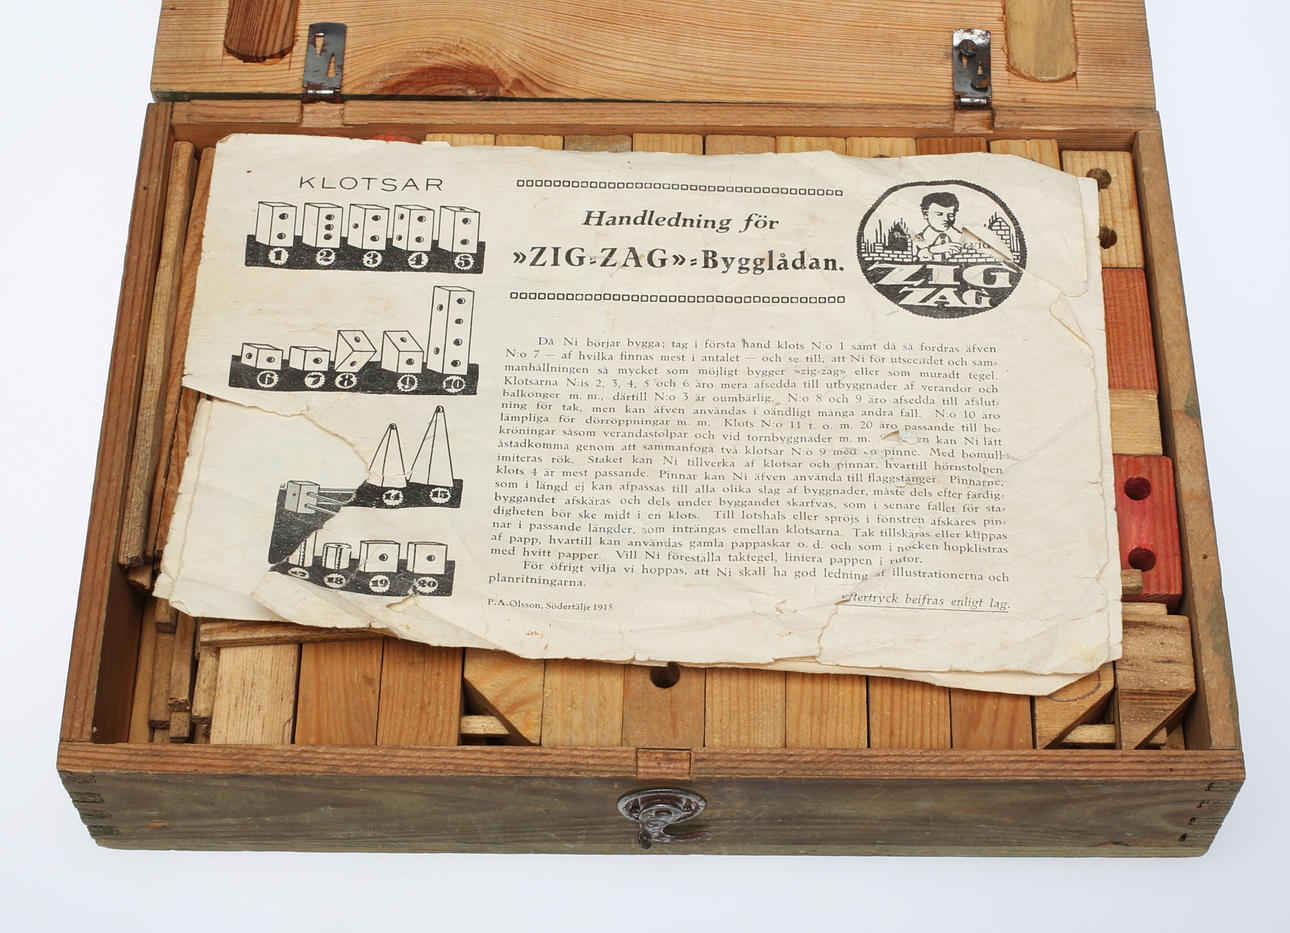 KLOTSAR
1 2 3 4 5
6 7 8 9 10
14 15
18 19 20
Handledning för
»ZIG-ZAG»-Bygglådan.
ZIG
ZAG
Då Ni börjar bygga; tag i första hand klots N:o 1 samt då så fordras äfven
N:o 7 — af hvilka finnas mest i antalet — och se till, att Ni för utseendet och sam-
manhållningen så mycket som möjligt bygger »zig-zag» eller som muradt tegel.
Klotsarna N:is 2, 3, 4, 5 och 6 äro mera afsedda till utbyggnader af verandor och
balkonger m. m., därtill N:o 3 är oumbärlig. N:o 8 och 9 äro afsedda till afslut-
ning för tak, men kan äfven användas i oändligt många andra fall. N:o 10 äro
lämpliga för dörröppningar m. m. Klots N:o 11 t. o. m. 20 äro passande till be-
kröningar såsom verandastolpar och vid tornbyggnader m. m. en kan Ni lätt
åstadkomma genom att sammanfoga två klotsar N:o 9 med en pinne. Med bomull
imiteras rök. Staket kan Ni tillverka af klotsar och pinnar, hvartill hörnstolpen
klots 4 är mest passande. Pinnar kan Ni äfven använda till flaggstänger. Pinnarne,
som i längd ej kan afpassas till alla olika slag af byggnader, måste dels efter färdig-
byggandet afskäras och dels under byggandet skarfvas, som i senare fallet för sta-
digheten bör ske midt i en klots. Till lotshals eller spröjs i fönstren afskäres pin-
nar i passande längder, som inträngas emellan klotsarna. Tak tillskäras eller klippas
af papp, hvartill kan användas gamla pappaskar o. d. och som i nocken hopklistras
med hvitt papper. Vill Ni föreställa taktegel, liniera pappen i rutor.
För öfrigt vilja vi hoppas, att Ni skall ha god ledning af illustrationerna och
planritningarna.
P. A. Olsson, Södertälje 1915
eftertryck beifras enligt lag.